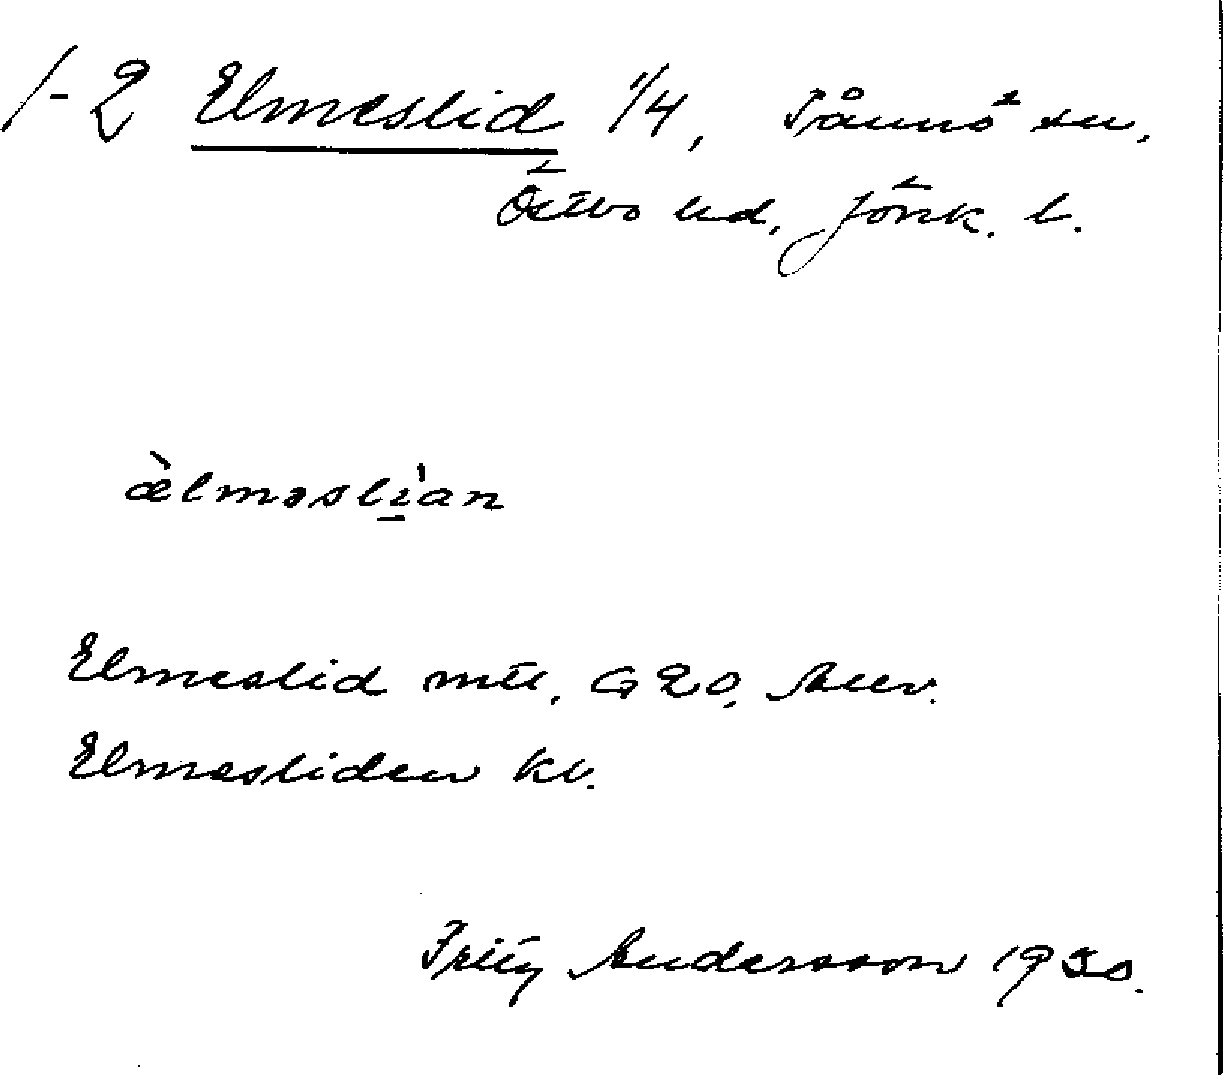 1-2 Elmeslid 1/4, Tånnö sn,
Östbo hd, Jönk. l.
æ̀lməsli̠'an
Elmeslid mtl, G 20, Skev.
Elmesliden kv.
Fritz Andersson 1930.